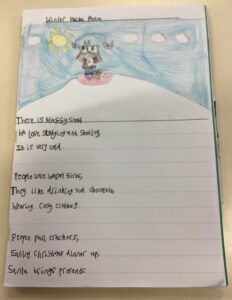 Winter Haiku Poem
There is fluffy snow
We love sledging and skating
It is very cold.
People love warm fires,
They like drinking hot chocolate
Wearing cosy clothes.
People pull crackers,
Eating Christmas dinner up,
Santa brings presents.